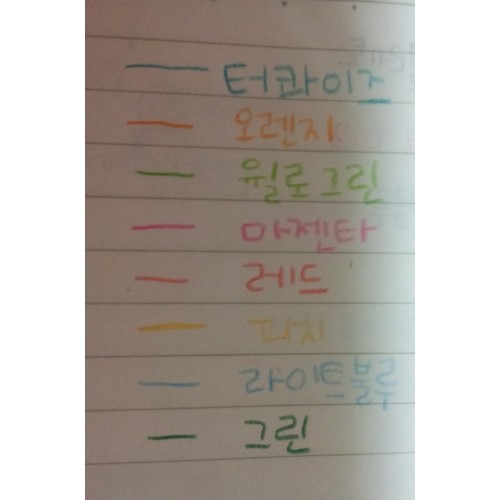 터콰이즈
오렌지
윌로그린
마젠타
레드
피치
라이트블루
그린